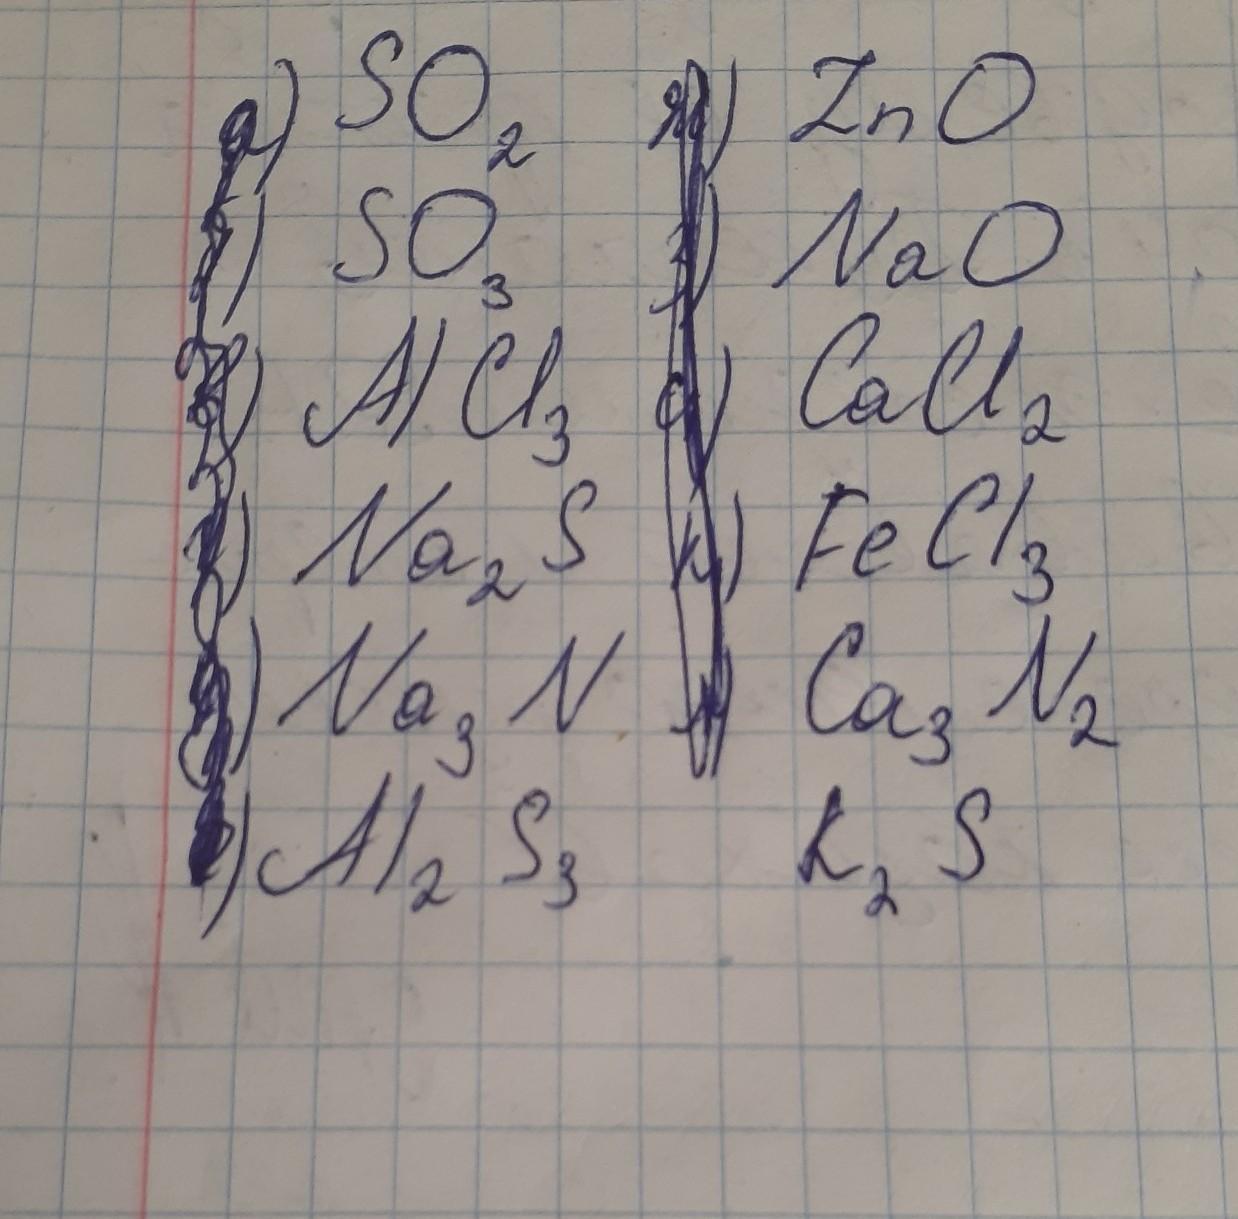 а) SO₂
б) SO₃
) AlCl₃
) Na₂S
) Na₃N
) Al₂S₃
) ZnO
) NaO
) CaCl₂
к) FeCl₃
) Ca₃N₂
K₂S